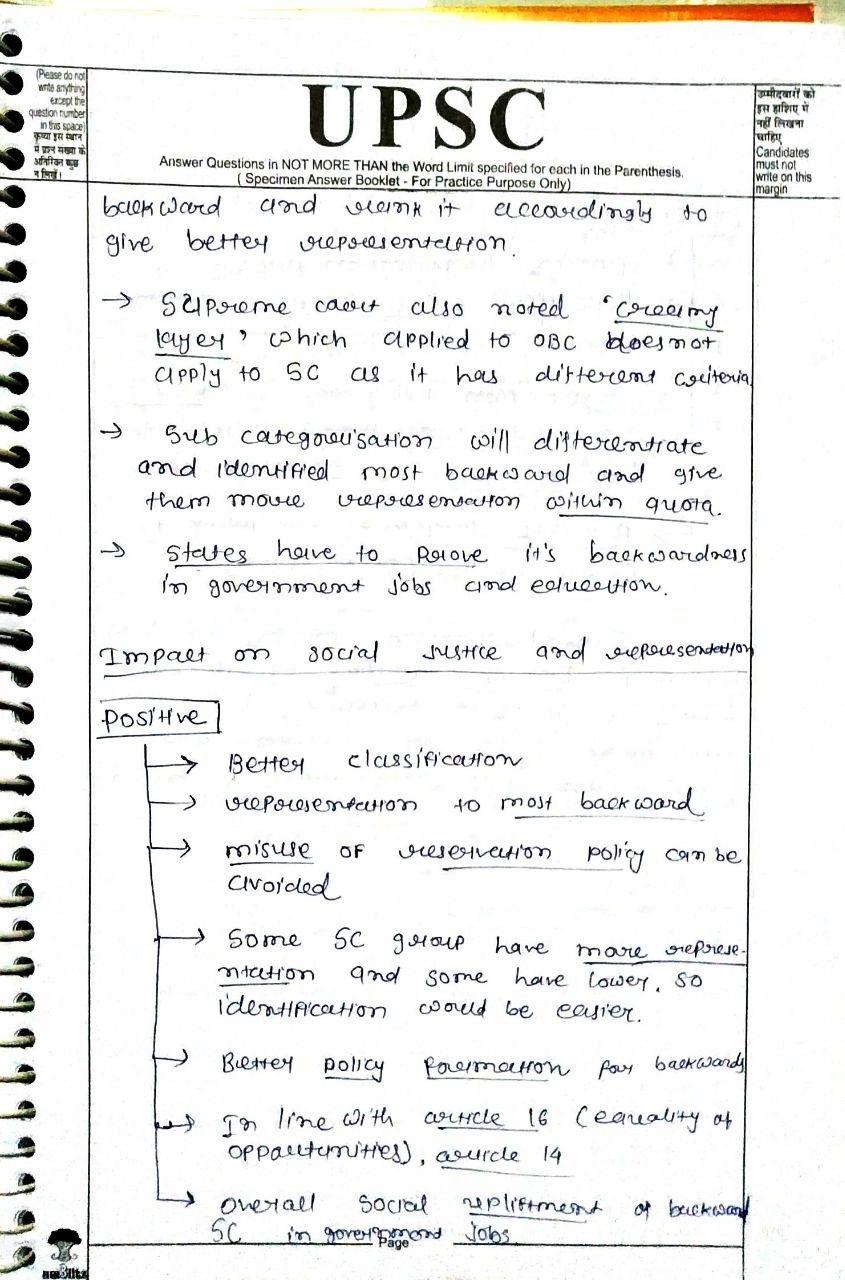 (Please do not
write anything
except the
question number
in this space)
कृपया इस स्थान
में प्रश्न संख्या के
अतिरिक्त कुछ
न लिखें।
UPSC
Answer Questions in NOT MORE THAN the Word Limit specified for each in the Parenthesis.
( Specimen Answer Booklet - For Practice Purpose Only)
उम्मीदवारों को
इस हाशिए में
नहीं लिखना
चाहिए
Candidates
must not
write on this
margin
backward and rank it accordingly to
give better representation.
→ Supreme court also noted 'creamy
layer' which applied to OBC does not
apply to SC as it has different criteria
→ Sub categorisation will differentiate
and identified most backward and give
them more representation within quota.
→ States have to Prove it's backwardness
in government jobs and education.
Impact on social justice and representation
Positive
→ Better classification
→ representation to most backward
→ misuse of reservation policy can be
avoided
→ Some SC group have more represe-
ntation and some have lower, so
identification would be easier.
→ Better policy formation for backwards
→ In line with article 16 (equality of
oppartunities), article 14
→ overall social upliftment of backward
SC in government jobs
Page